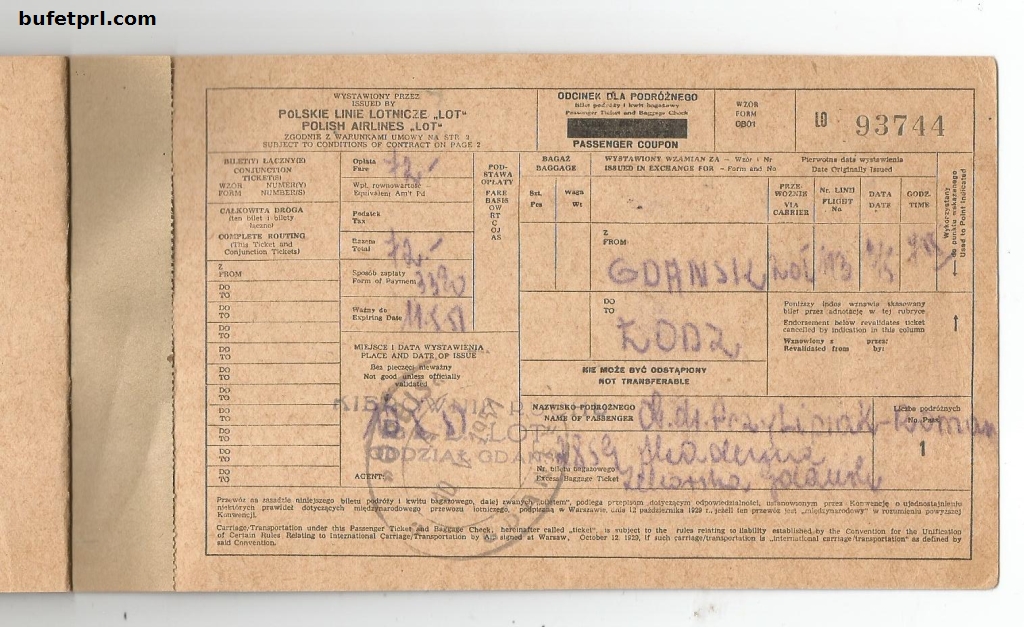 bufetprl.com
WYSTAWIONY PRZEZ
ISSUED BY
POLSKIE LINIE LOTNICZE „LOT"
POLISH AIRLINES „LOT"
ZGODNIE Z WARUNKAMI UMOWY NA STR 2
SUBJECT TO CONDITIONS OF CONTRACT ON PAGE 2
ODCINEK DLA PODRÓŻNEGO
Bilet podróży i kwit bagażowy
Passenger Ticket and Baggage Check
PASSENGER COUPON
WZÓR
FORM
OB01
LO 93744
BILET(Y) ŁĄCZNY(E)
CONJUNCTION
TICKET(S)
WZÓR NUMER(Y)
FORM NUMBER(S)
CAŁKOWITA DROGA
(ten bilet i bilety
łączne)
COMPLETE ROUTING
(This Ticket and
Conjunction Tickets)
Z
FROM
DO
TO
DO
TO
DO
TO
DO
TO
DO
TO
DO
TO
DO
TO
DO
TO
DO
TO
DO
TO
Opłata
Fare 72,-
Wpł. równowartość
Equivalent Am't Pd
Podatek
Tax
Razem
Total 72,-
Sposób zapłaty
Form of Payment
Ważny do
Expiring Date 11.5.51
POD-
STAWA
OPŁATY
FARE
BASIS
OW
RT
C
OJ
AS
MIEJSCE I DATA WYSTAWIENIA
PLACE AND DATE OF ISSUE
Bez pieczęci nieważny
Not good unless officially
validated
„LOT"
ODDZIAŁ GDAŃSK
AGENT:
BAGAŻ
BAGGAGE
Szt.
Pcs
Waga
Wt
WYSTAWIONY WZAMIAN ZA - Wzór i Nr
ISSUED IN EXCHANGE FOR - Form and No
Pierwotna data wystawienia
Date Originally Issued
PRZE-
WOŹNIK
VIA
CARRIER
Nr. LINII
FLIGHT
No.
DATA
DATE
GODZ.
TIME
Wykorzystany
do punktu wskazanego
Used to Point Indicated
Z
FROM
GDAŃSK
DO
TO
ŁÓDŹ
Poniższy indos wznawia skasowany
bilet przez adnotację w tej rubryce
Endorsement below revalidates ticket
cancelled by indication in this column
Wznowiony z przez:
Revalidated from by:
NIE MOŻE BYĆ ODSTĄPIONY
NOT TRANSFERABLE
NAZWISKO PODRÓŻNEGO
NAME OF PASSENGER
Liczba podróżnych
No. Pass.
1
Nr. biletu bagażowego
Excess Baggage Ticket
Przewóz na zasadzie niniejszego biletu podróży i kwitu bagażowego, dalej zwanych „biletem", podlega przepisom dotyczącym odpowiedzialności, ustanowionym przez Konwencję o ujednostajnieniu
niektórych prawideł dotyczących międzynarodowego przewozu lotniczego, podpisaną w Warszawie, dnia 12 października 1929 r. jeżeli ten przewóz jest „międzynarodowy" w rozumieniu powyższej
Konwencji.
Carriage/Transportation under this Passenger Ticket and Baggage Check, hereinafter called „ticket", is subject to the rules relating to liability established by the Convention for the Unification
of Certain Rules Relating to International Carriage/Transportation by Air signed at Warsaw, October 12, 1929, if such carriage/transportation is „international carriage/transportation" as defined by
said Convention.